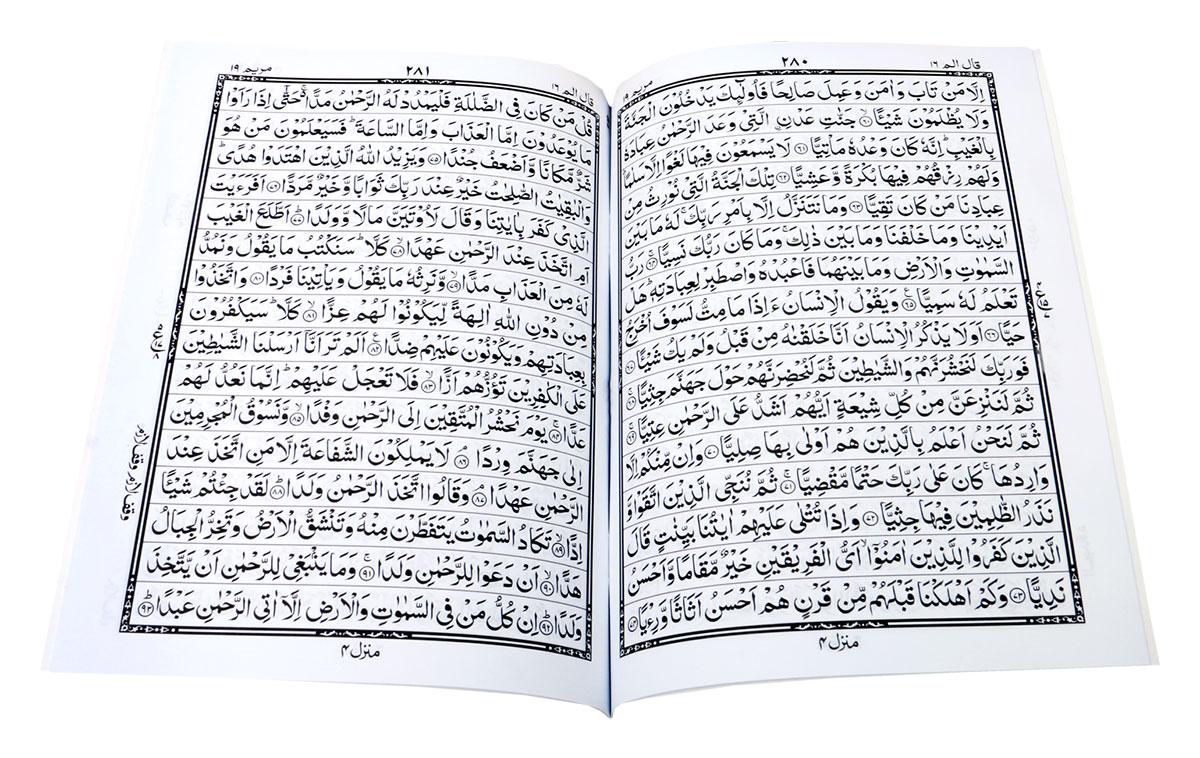 قال الم ١٦
٢٨٠
مريم ١٩
اِلَّا مَنْ تَابَ وَاٰمَنَ وَعَمِلَ صَالِحًا فَاُولٰٓئِكَ يَدْخُلُوْنَ الْجَنَّةَ
وَلَا يُظْلَمُوْنَ شَيْـًٔا ۙ﴿٦٠﴾ جَنّٰتِ عَدْنِ ِۨالَّتِيْ وَعَدَ الرَّحْمٰنُ عِبَادَهٗ
بِالْغَيْبِ ؕ اِنَّهٗ كَانَ وَعْدُهٗ مَاْتِيًّا ﴿٦١﴾ لَا يَسْمَعُوْنَ فِيْهَا لَغْوًا اِلَّا سَلٰمًا ؕ
وَلَهُمْ رِزْقُهُمْ فِيْهَا بُكْرَةً وَّعَشِيًّا ﴿٦٢﴾ تِلْكَ الْجَنَّةُ الَّتِيْ نُوْرِثُ مِنْ
عِبَادِنَا مَنْ كَانَ تَقِيًّا ﴿٦٣﴾ وَمَا نَتَنَزَّلُ اِلَّا بِاَمْرِ رَبِّكَ ۚ لَهٗ مَا بَيْنَ
اَيْدِيْنَا وَمَا خَلْفَنَا وَمَا بَيْنَ ذٰلِكَ ۚ وَمَا كَانَ رَبُّكَ نَسِيًّا ۚ﴿٦٤﴾ رَبُّ
السَّمٰوٰتِ وَالْاَرْضِ وَمَا بَيْنَهُمَا فَاعْبُدْهُ وَاصْطَبِرْ لِعِبَادَتِهٖ ؕ هَلْ
تَعْلَمُ لَهٗ سَمِيًّا ﴿٦٥﴾ وَيَقُوْلُ الْاِنْسَانُ ءَاِذَا مَا مِتُّ لَسَوْفَ اُخْرَجُ
حَيًّا ﴿٦٦﴾ اَوَلَا يَذْكُرُ الْاِنْسَانُ اَنَّا خَلَقْنٰهُ مِنْ قَبْلُ وَلَمْ يَكُ شَيْـًٔا ﴿٦٧﴾
فَوَرَبِّكَ لَنَحْشُرَنَّهُمْ وَالشَّيٰطِيْنَ ثُمَّ لَنُحْضِرَنَّهُمْ حَوْلَ جَهَنَّمَ جِثِيًّا ۚ﴿٦٨﴾
ثُمَّ لَنَنْزِعَنَّ مِنْ كُلِّ شِيْعَةٍ اَيُّهُمْ اَشَدُّ عَلَى الرَّحْمٰنِ عِتِيًّا ۚ﴿٦٩﴾
ثُمَّ لَنَحْنُ اَعْلَمُ بِالَّذِيْنَ هُمْ اَوْلٰى بِهَا صِلِيًّا ﴿٧٠﴾ وَاِنْ مِّنْكُمْ اِلَّا
وَارِدُهَا ۚ كَانَ عَلٰى رَبِّكَ حَتْمًا مَّقْضِيًّا ۚ﴿٧١﴾ ثُمَّ نُنَجِّي الَّذِيْنَ اتَّقَوْا وَّ
نَذَرُ الظّٰلِمِيْنَ فِيْهَا جِثِيًّا ﴿٧٢﴾ وَاِذَا تُتْلٰى عَلَيْهِمْ اٰيٰتُنَا بَيِّنٰتٍ قَالَ
الَّذِيْنَ كَفَرُوْا لِلَّذِيْنَ اٰمَنُوْٓا ۙ اَيُّ الْفَرِيْقَيْنِ خَيْرٌ مَّقَامًا وَّاَحْسَنُ
نَدِيًّا ﴿٧٣﴾ وَكَمْ اَهْلَكْنَا قَبْلَهُمْ مِّنْ قَرْنٍ هُمْ اَحْسَنُ اَثَاثًا وَّرِءْيًا ﴿٧٤﴾
منزل ٤
قال الم ١٦
٢٨١
مريم ١٩
قُلْ مَنْ كَانَ فِي الضَّلٰلَةِ فَلْيَمْدُدْ لَهُ الرَّحْمٰنُ مَدًّا ۚ حَتّٰٓى اِذَا رَاَوْا
مَا يُوْعَدُوْنَ اِمَّا الْعَذَابَ وَاِمَّا السَّاعَةَ ؕ فَسَيَعْلَمُوْنَ مَنْ هُوَ
شَرٌّ مَّكَانًا وَّاَضْعَفُ جُنْدًا ﴿٧٥﴾ وَيَزِيْدُ اللّٰهُ الَّذِيْنَ اهْتَدَوْا هُدًى ؕ
وَالْبٰقِيٰتُ الصّٰلِحٰتُ خَيْرٌ عِنْدَ رَبِّكَ ثَوَابًا وَّخَيْرٌ مَّرَدًّا ﴿٧٦﴾ اَفَرَءَيْتَ
الَّذِيْ كَفَرَ بِاٰيٰتِنَا وَقَالَ لَاُوْتَيَنَّ مَالًا وَّوَلَدًا ؕ﴿٧٧﴾ اَطَّلَعَ الْغَيْبَ
اَمِ اتَّخَذَ عِنْدَ الرَّحْمٰنِ عَهْدًا ۙ﴿٧٨﴾ كَلَّا ؕ سَنَكْتُبُ مَا يَقُوْلُ وَنَمُدُّ
لَهٗ مِنَ الْعَذَابِ مَدًّا ۙ﴿٧٩﴾ وَّنَرِثُهٗ مَا يَقُوْلُ وَيَاْتِيْنَا فَرْدًا ﴿٨٠﴾ وَاتَّخَذُوْا
مِنْ دُوْنِ اللّٰهِ اٰلِهَةً لِّيَكُوْنُوْا لَهُمْ عِزًّا ۙ﴿٨١﴾ كَلَّا ؕ سَيَكْفُرُوْنَ
بِعِبَادَتِهِمْ وَيَكُوْنُوْنَ عَلَيْهِمْ ضِدًّا ﴿٨٢﴾ اَلَمْ تَرَ اَنَّآ اَرْسَلْنَا الشَّيٰطِيْنَ
عَلَى الْكٰفِرِيْنَ تَؤُزُّهُمْ اَزًّا ۙ﴿٨٣﴾ فَلَا تَعْجَلْ عَلَيْهِمْ ؕ اِنَّمَا نَعُدُّ لَهُمْ
عَدًّا ۚ﴿٨٤﴾ يَوْمَ نَحْشُرُ الْمُتَّقِيْنَ اِلَى الرَّحْمٰنِ وَفْدًا ۙ﴿٨٥﴾ وَّنَسُوْقُ الْمُجْرِمِيْنَ
اِلٰى جَهَنَّمَ وِرْدًا ۘ﴿٨٦﴾ لَا يَمْلِكُوْنَ الشَّفَاعَةَ اِلَّا مَنِ اتَّخَذَ عِنْدَ
الرَّحْمٰنِ عَهْدًا ۘ﴿٨٧﴾ وَقَالُوا اتَّخَذَ الرَّحْمٰنُ وَلَدًا ؕ﴿٨٨﴾ لَقَدْ جِئْتُمْ شَيْـًٔا
اِدًّا ۙ﴿٨٩﴾ تَكَادُ السَّمٰوٰتُ يَتَفَطَّرْنَ مِنْهُ وَتَنْشَقُّ الْاَرْضُ وَتَخِرُّ الْجِبَالُ
هَدًّا ۙ﴿٩٠﴾ اَنْ دَعَوْا لِلرَّحْمٰنِ وَلَدًا ۚ﴿٩١﴾ وَمَا يَنْۢبَغِيْ لِلرَّحْمٰنِ اَنْ يَّتَّخِذَ
وَلَدًا ؕ﴿٩٢﴾ اِنْ كُلُّ مَنْ فِي السَّمٰوٰتِ وَالْاَرْضِ اِلَّآ اٰتِي الرَّحْمٰنِ عَبْدًا ؕ﴿٩٣﴾
منزل ٤